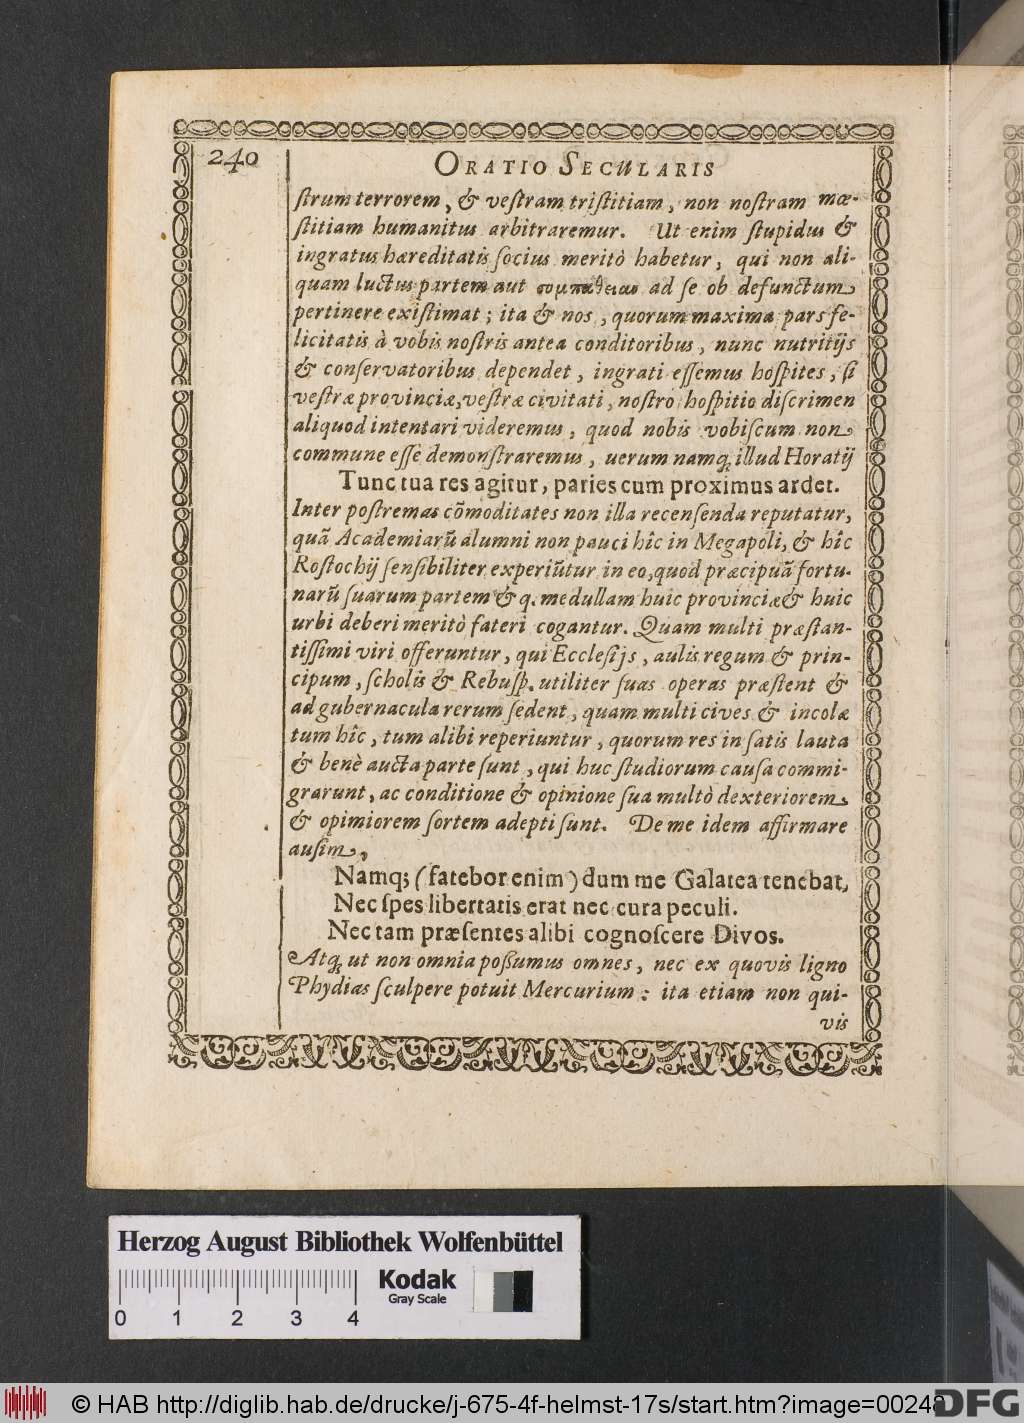 240
ORATIO SECULARIS
strum terrorem, & vestram tristitiam, non nostram mœ-
stitiam humanitus arbitraremur. Ut enim stupidus &
ingratus hæreditatis socius meritò habetur, qui non ali-
quam luctus partem aut συμπαθειαν ad se ob defunctum
pertinere existimat; ita & nos, quorum maxima pars fe-
licitatis à vobis nostris antea conditoribus, nunc nutritijs
& conservatoribus dependet, ingrati essemus hospites, si
vestræ provinciæ, vestræ civitati, nostro hospitio discrimen
aliquod intentari videremus, quod nobis vobiscum non
commune esse demonstraremus, uerum namq; illud Horatij
Tunc tua res agitur, paries cum proximus ardet.
Inter postremas cõmoditates non illa recensenda reputatur,
quã Academiarũ alumni non pauci hîc in Megapoli, & hîc
Rostochij sensibiliter experiũtur in eo, quod præcipuã fortu-
narũ suarum partem & q. medullam huic provinciæ & huic
urbi deberi meritò fateri cogantur. Quam multi præstan-
tissimi viri offeruntur, qui Ecclesijs, aulis regum & prin-
cipum, scholis & Rebusp. utiliter suas operas præstent &
ad gubernacula rerum sedent, quam multi cives & incolæ
tum hîc, tum alibi reperiuntur, quorum res in satis lauta
& benè aucta parte sunt, qui huc studiorum causa commi-
grarunt, ac conditione & opinione sua multò dexteriorem
& opimiorem sortem adepti sunt. De me idem affirmare
ausim,
Namq; (fatebor enim) dum me Galatea tenebat,
Nec spes libertatis erat nec cura peculi.
Nec tam præsentes alibi cognoscere Divos.
Atq; ut non omnia possumus omnes, nec ex quovis ligno
Phydias sculpere potuit Mercurium: ita etiam non qui-
vis
Herzog August Bibliothek Wolfenbüttel
Kodak
Gray Scale
0 1 2 3 4
© HAB http://diglib.hab.de/drucke/j-675-4f-helmst-17s/start.htm?image=00248
DFG